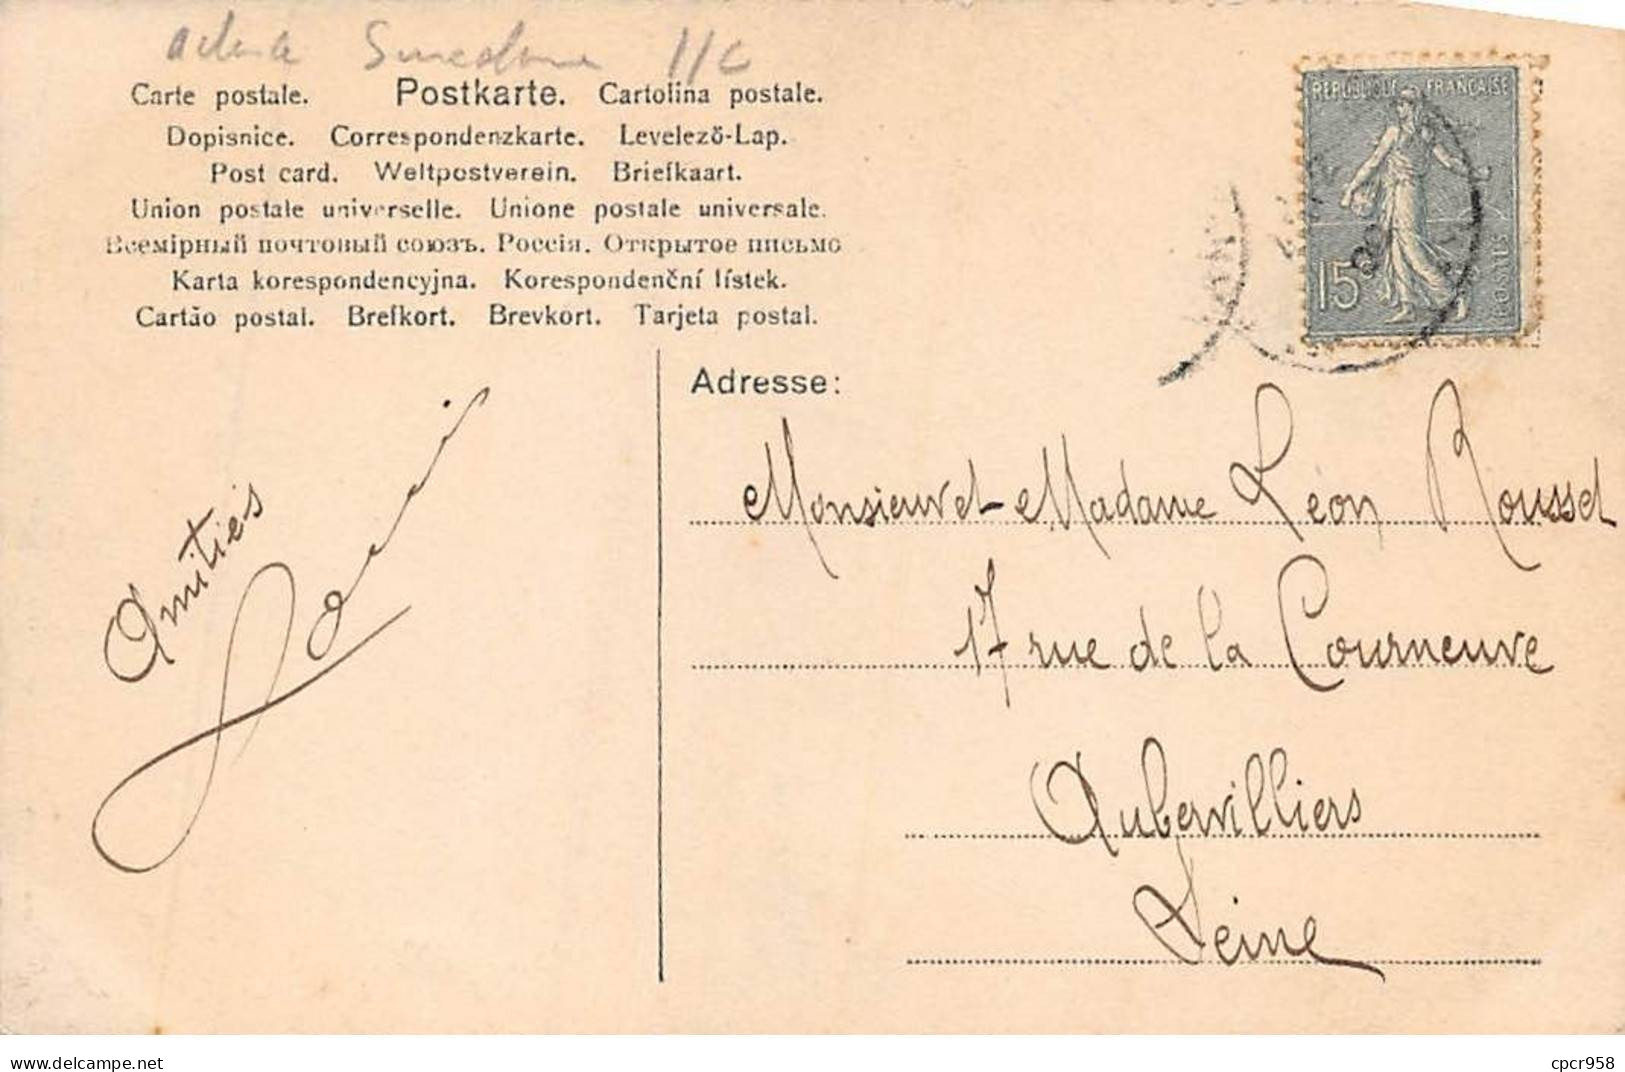 Carte postale. Postkarte. Cartolina postale.
Dopisnice. Correspondenzkarte. Levelező-Lap.
Post card. Weltpostverein. Briefkaart.
Union postale universelle. Unione postale universale.
Всемірный почтовый союзъ. Россія. Открытое письмо
Karta korespondencyjna. Korespondenční lístek.
Cartão postal. Brefkort. Brevkort. Tarjeta postal.
REPUBLIQUE FRANÇAISE
15c
POSTES
Adresse:
Amitiés
Monsieur et Madame Léon Roussel
17 rue de la Courneuve
Aubervilliers
Seine
delcampe.net
cpcr958